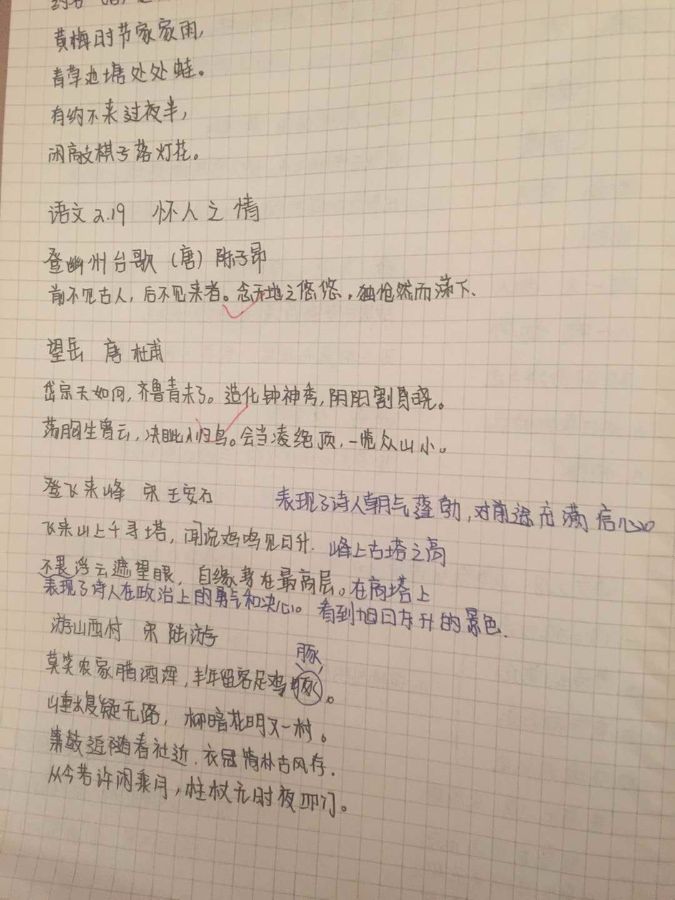 黄梅时节家家雨,
青草池塘处处蛙。
有约不来过夜半,
闲敲棋子落灯花。
语文2.19 怀人之情
登幽州台歌 (唐) 陈子昂
前不见古人, 后不见来者。念天地之悠悠, 独怆然而涕下、
望岳 唐 杜甫
岱宗夫如何, 齐鲁青未了。造化钟神秀, 阴阳割昏晓。
荡胸生曾云, 决眦入归鸟。会当凌绝顶, 一览众山小。
登飞来峰 宋 王安石 表现了诗人朝气蓬勃, 对前途充满信心。
飞来山上千寻塔, 闻说鸡鸣见日升. 峰上古塔之高
不畏浮云遮望眼, 自缘身在最高层。在高塔上
表现了诗人在政治上的勇气和决心。 看到旭日东升的景色.
游山西村 宋 陆游
豚
莫笑农家腊酒浑, 丰年留客足鸡豚。
山重水复疑无路, 柳暗花明又一村。
箫鼓追随春社近. 衣冠简朴古风存.
从今若许闲乘月, 柱杖无时夜叩门。